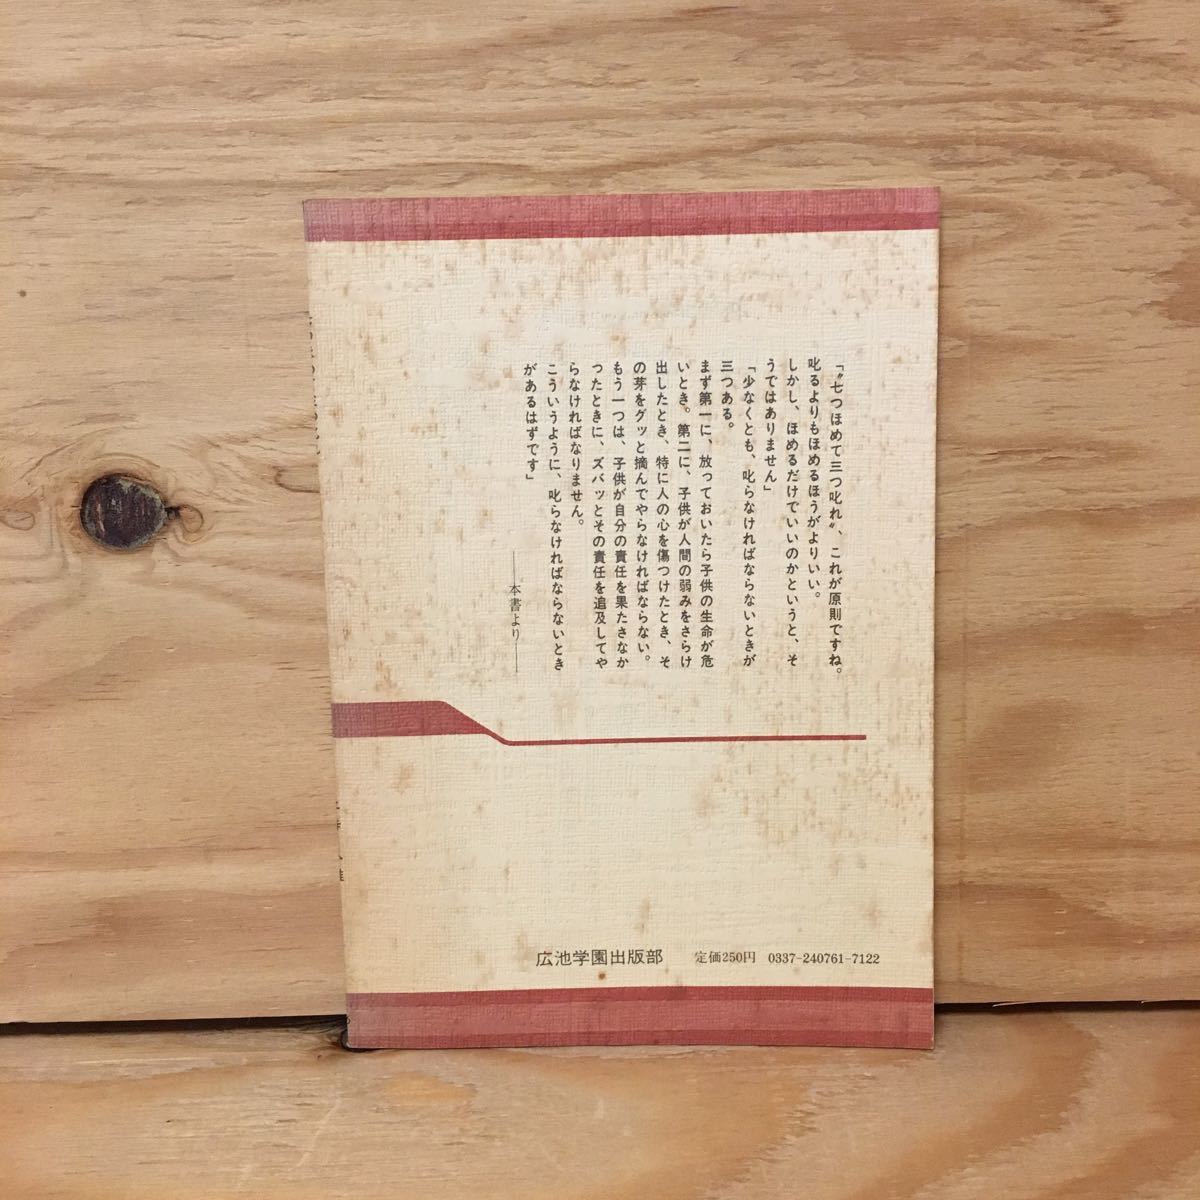 「〝七つほめて三つ叱れ〟、これが原則ですね。
叱るよりもほめるほうがよりいい。
しかし、ほめるだけでいいのかというと、そ
うではありません」
「少なくとも、叱らなければならないときが
三つある。
まず第一に、放っておいたら子供の生命が危
いとき。第二に、子供が人間の弱みをさらけ
出したとき、特に人の心を傷つけたとき、そ
の芽をグッと摘んでやらなければならない。
もう一つは、子供が自分の責任を果たさなか
ったときに、ズバッとその責任を追及してや
らなければなりません。
こういうように、叱らなければならないとき
があるはずです」
――本書より――
広池学園出版部 定価250円 0337-240761-7122